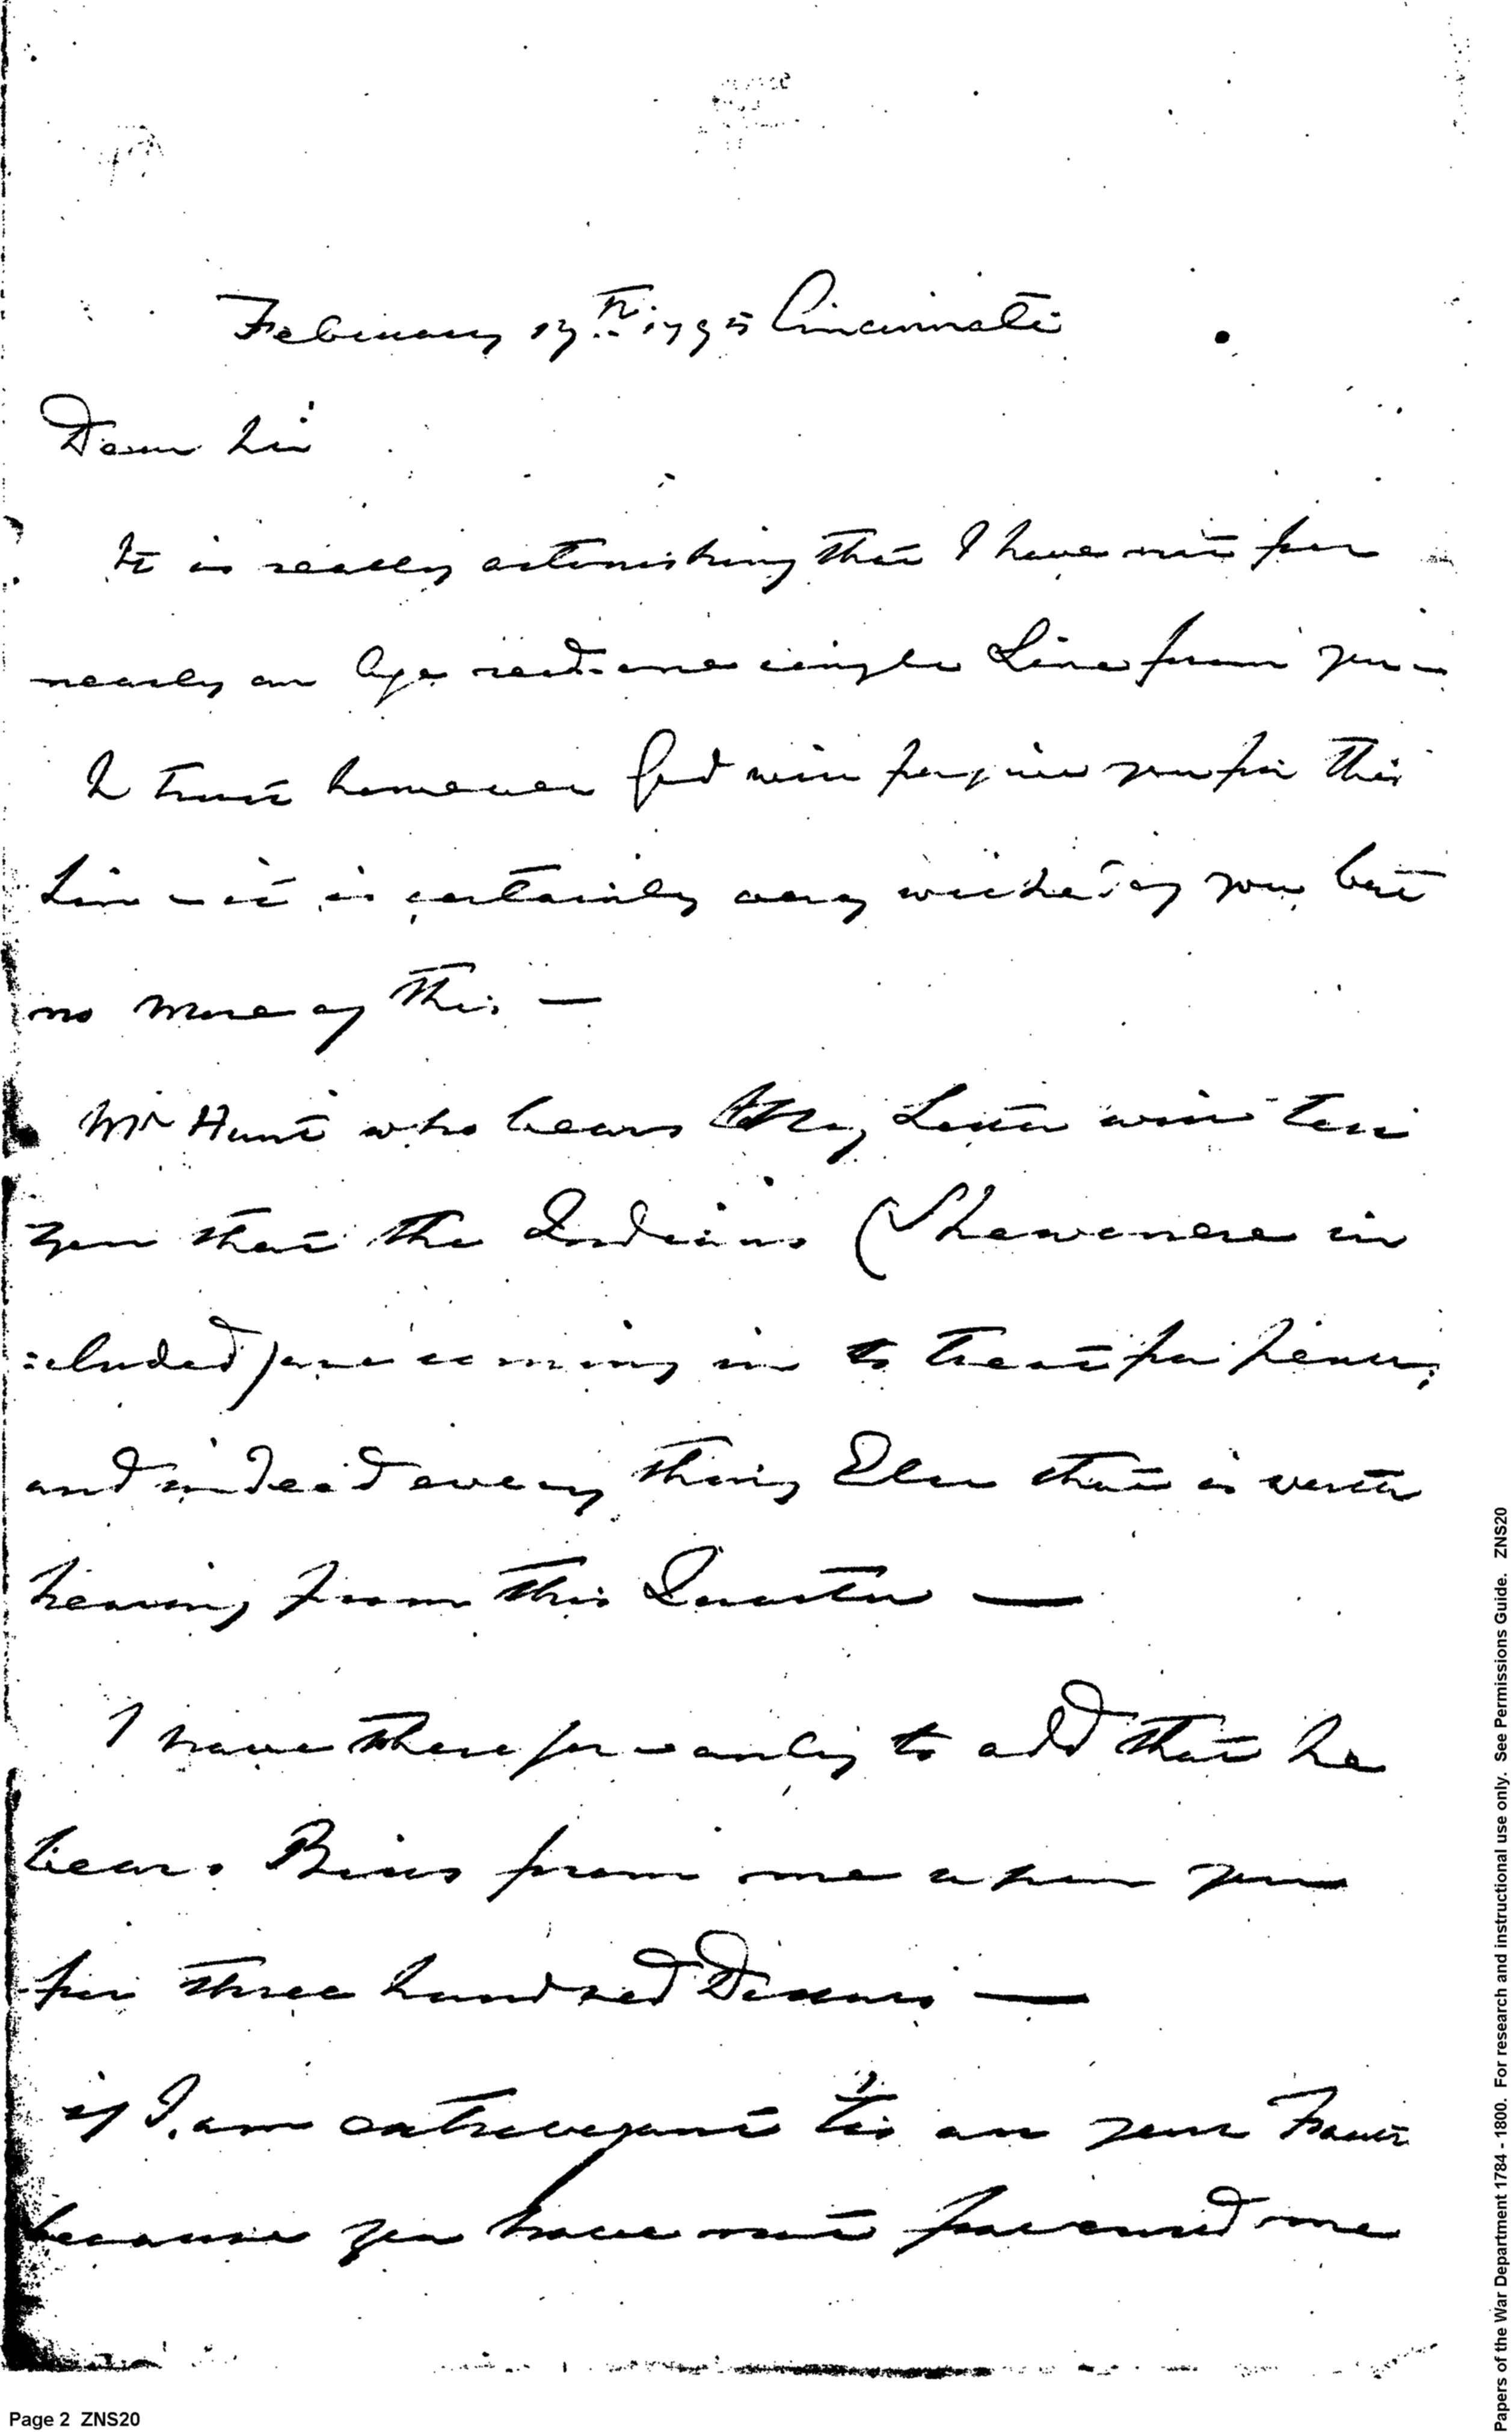 February 17th. 1795 Cincinnati
Dear Sir
It is really astonishing that I have not for
nearly an Age recd. one single Line from you -
I trust however God will forgive you for this
Sin - it is certainly very wicked of you, but
no more of this —
Mr Hunt who bears my Letter will tell
you that the Indians (Shawanese in
=cluded) are coming in to treat for peace,
and indeed every thing Else that is worth
hearing from this Quarter —
I have therefore only to add that he
bears Bills from me upon you
for three hundred Dollars —
if I am extravagant 'tis all your Fault
because you have not favoured me
Page 2 ZNS20
Papers of the War Department 1784 - 1800. For research and instructional use only. See Permissions Guide. ZNS20